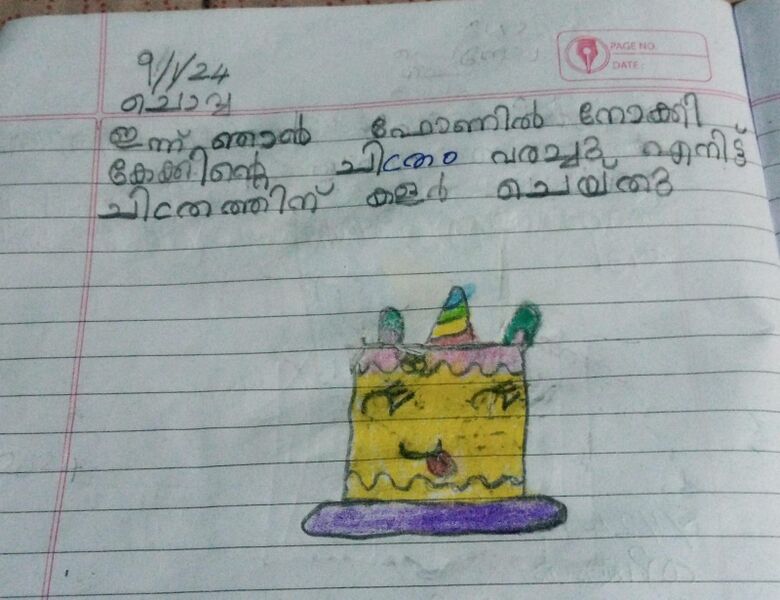 9/1/24
ചൊവ്വ
PAGE NO.
DATE :
ഇന്ന് ഞാൻ ഫോണിൽ നോക്കി
കേക്കിന്റെ ചിത്രം വരച്ചു എന്നിട്ട്
ചിത്രത്തിന് കളർ ചെയ്തു